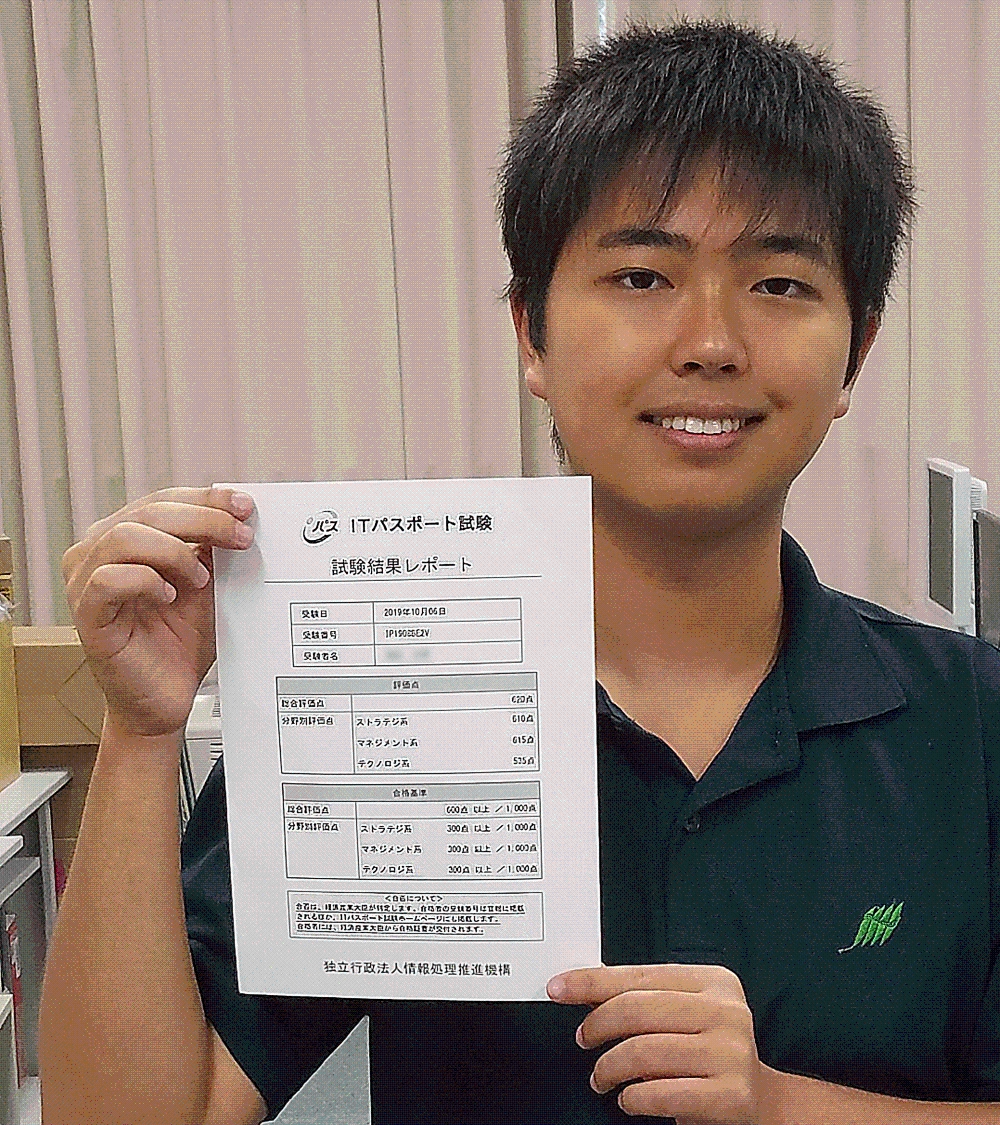 iパス ITパスポート試験
試験結果レポート
受験日 2019年10月06日
受験番号
受験者名
評価点
総合評価点 620点
分野別評価点 ストラテジ系 610点
マネジメント系 615点
テクノロジ系 535点
合格基準
総合評価点 600点 以上 / 1,000点
分野別評価点 ストラテジ系 300点 以上 / 1,000点
マネジメント系 300点 以上 / 1,000点
テクノロジ系 300点 以上 / 1,000点
<合否について>
合否は、経済産業大臣が判定します。合格者の受験番号は官報に掲載
されるほか、ITパスポート試験ホームページにも掲載します。
合格者には、経済産業大臣から合格証書が交付されます。
独立行政法人情報処理推進機構